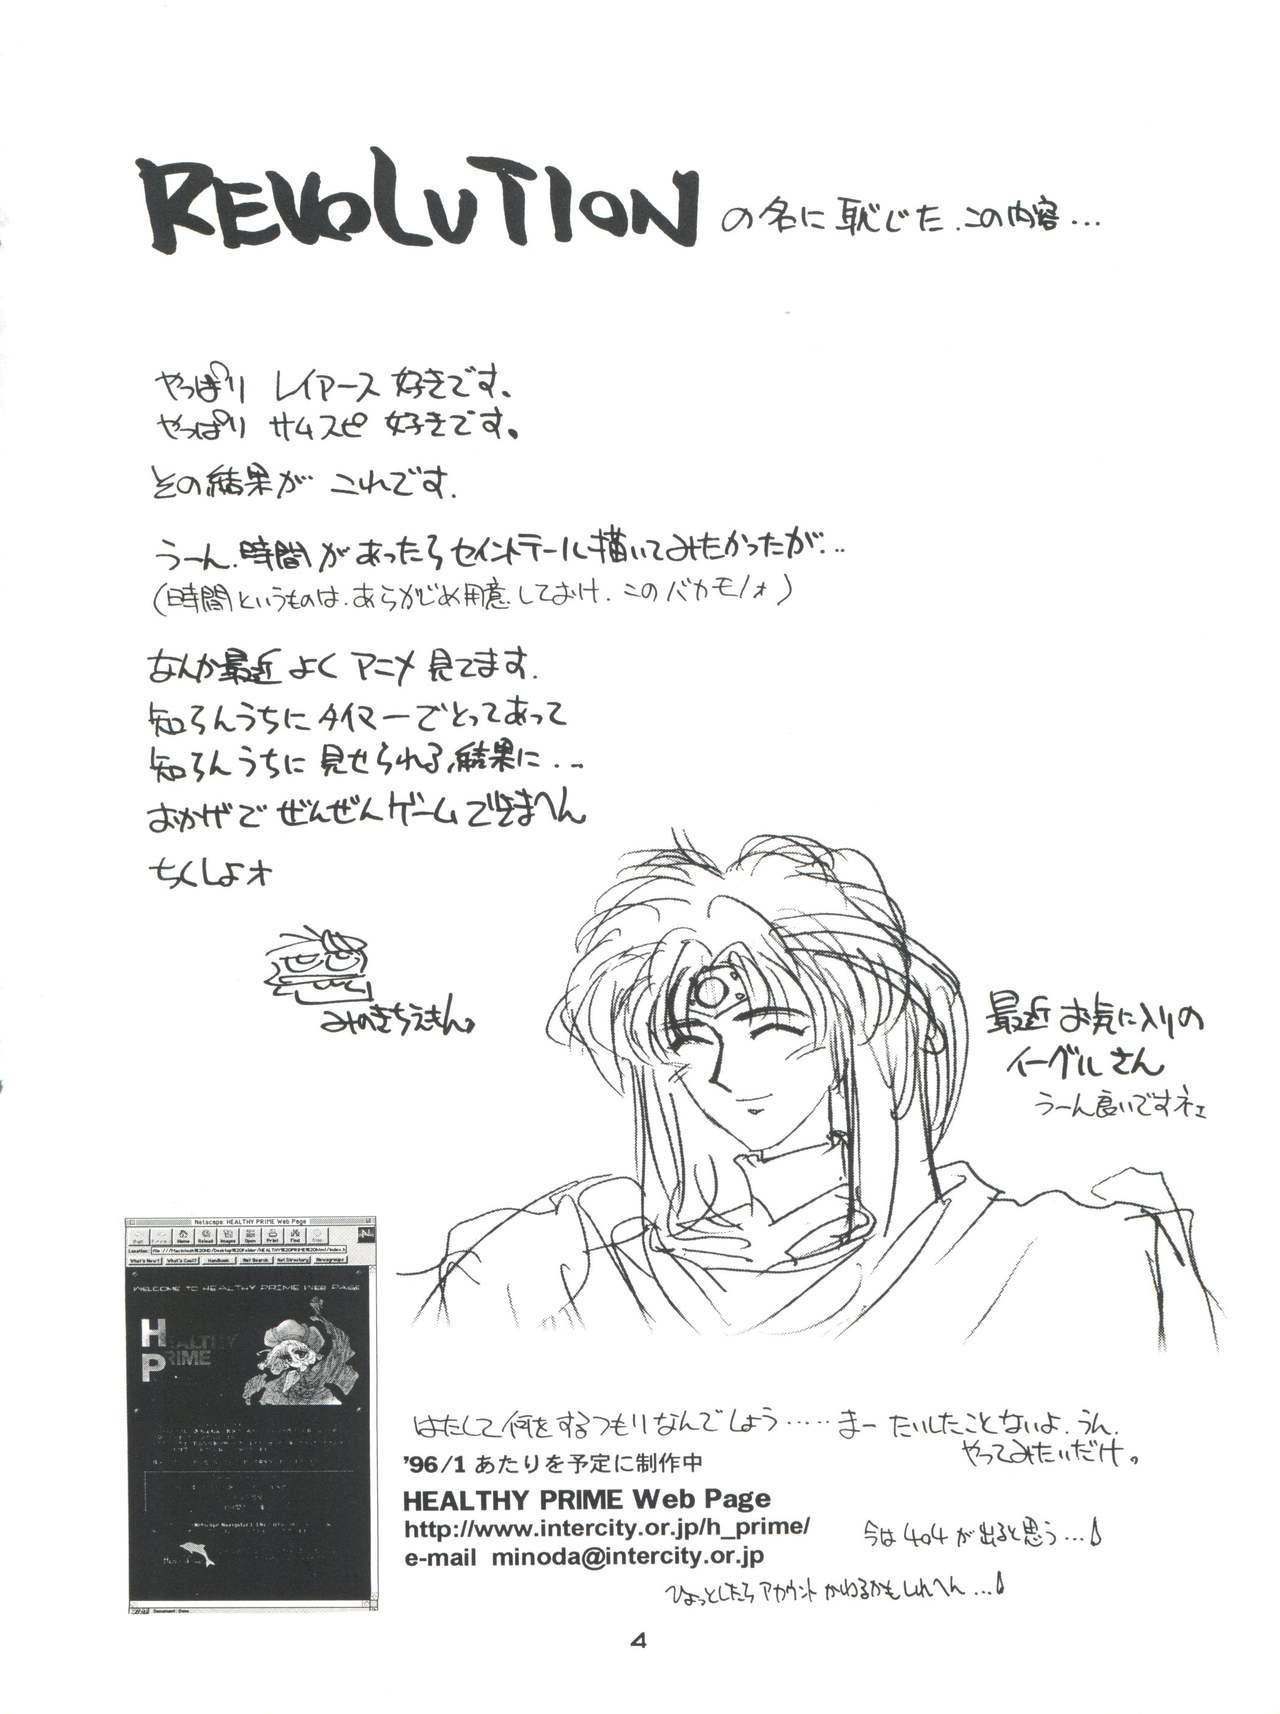 REVOLUTION の名に恥じた、この内容…
やっぱり レイアース 好きです。
やっぱり サムスピ 好きです。
その結果が これです.
うーん.時間があったらセイントテール描いてみたかったが…
(時間というものは、あらかじめ用意しておけ.このバカモノォ)
なんか最近 よく アニメ 見てます.
知らんうちに タイマーでとってあって
知らんうちに 見せられる、結果に…
おかげで ぜんぜんゲームできまへん
ちくしょオ
みのきちえもん。
最近 お気に入りの
イーグルさん
うーん良いですネェ
Netscape: HEALTHY PRIME Web Page
Home Reload Images Open Print Find
Location: file:///Macintosh%20HD/Desktop%20Folder/HEALTHY%20PRIME%20html/index.h
What's New! What's Cool! Handbook Net Search Net Directory Newsgroups
WELCOME TO HEALTHY PRIME WEB PAGE
HEALTHY
PRIME
Document: Done
はたして何をするつもりなんでしょう……まー たいしたことないよ.うん.
やってみたいだけ。
'96/1 あたりを予定に制作中
HEALTHY PRIME Web Page
http://www.intercity.or.jp/h_prime/
今は404が出ると思う…♪
e-mail minoda@intercity.or.jp
ひょっとしたらアカウント かわるかもしれへん…♪
4